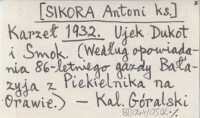 [SIKORA Antoni ks.]
Karzeł 1932. Ujek Dukot
i Smok. (Według opowiada-
nia 86-letniego gazdy Bała-
zyja z Piekielnika na
Orawie.) — Kal. Góralski